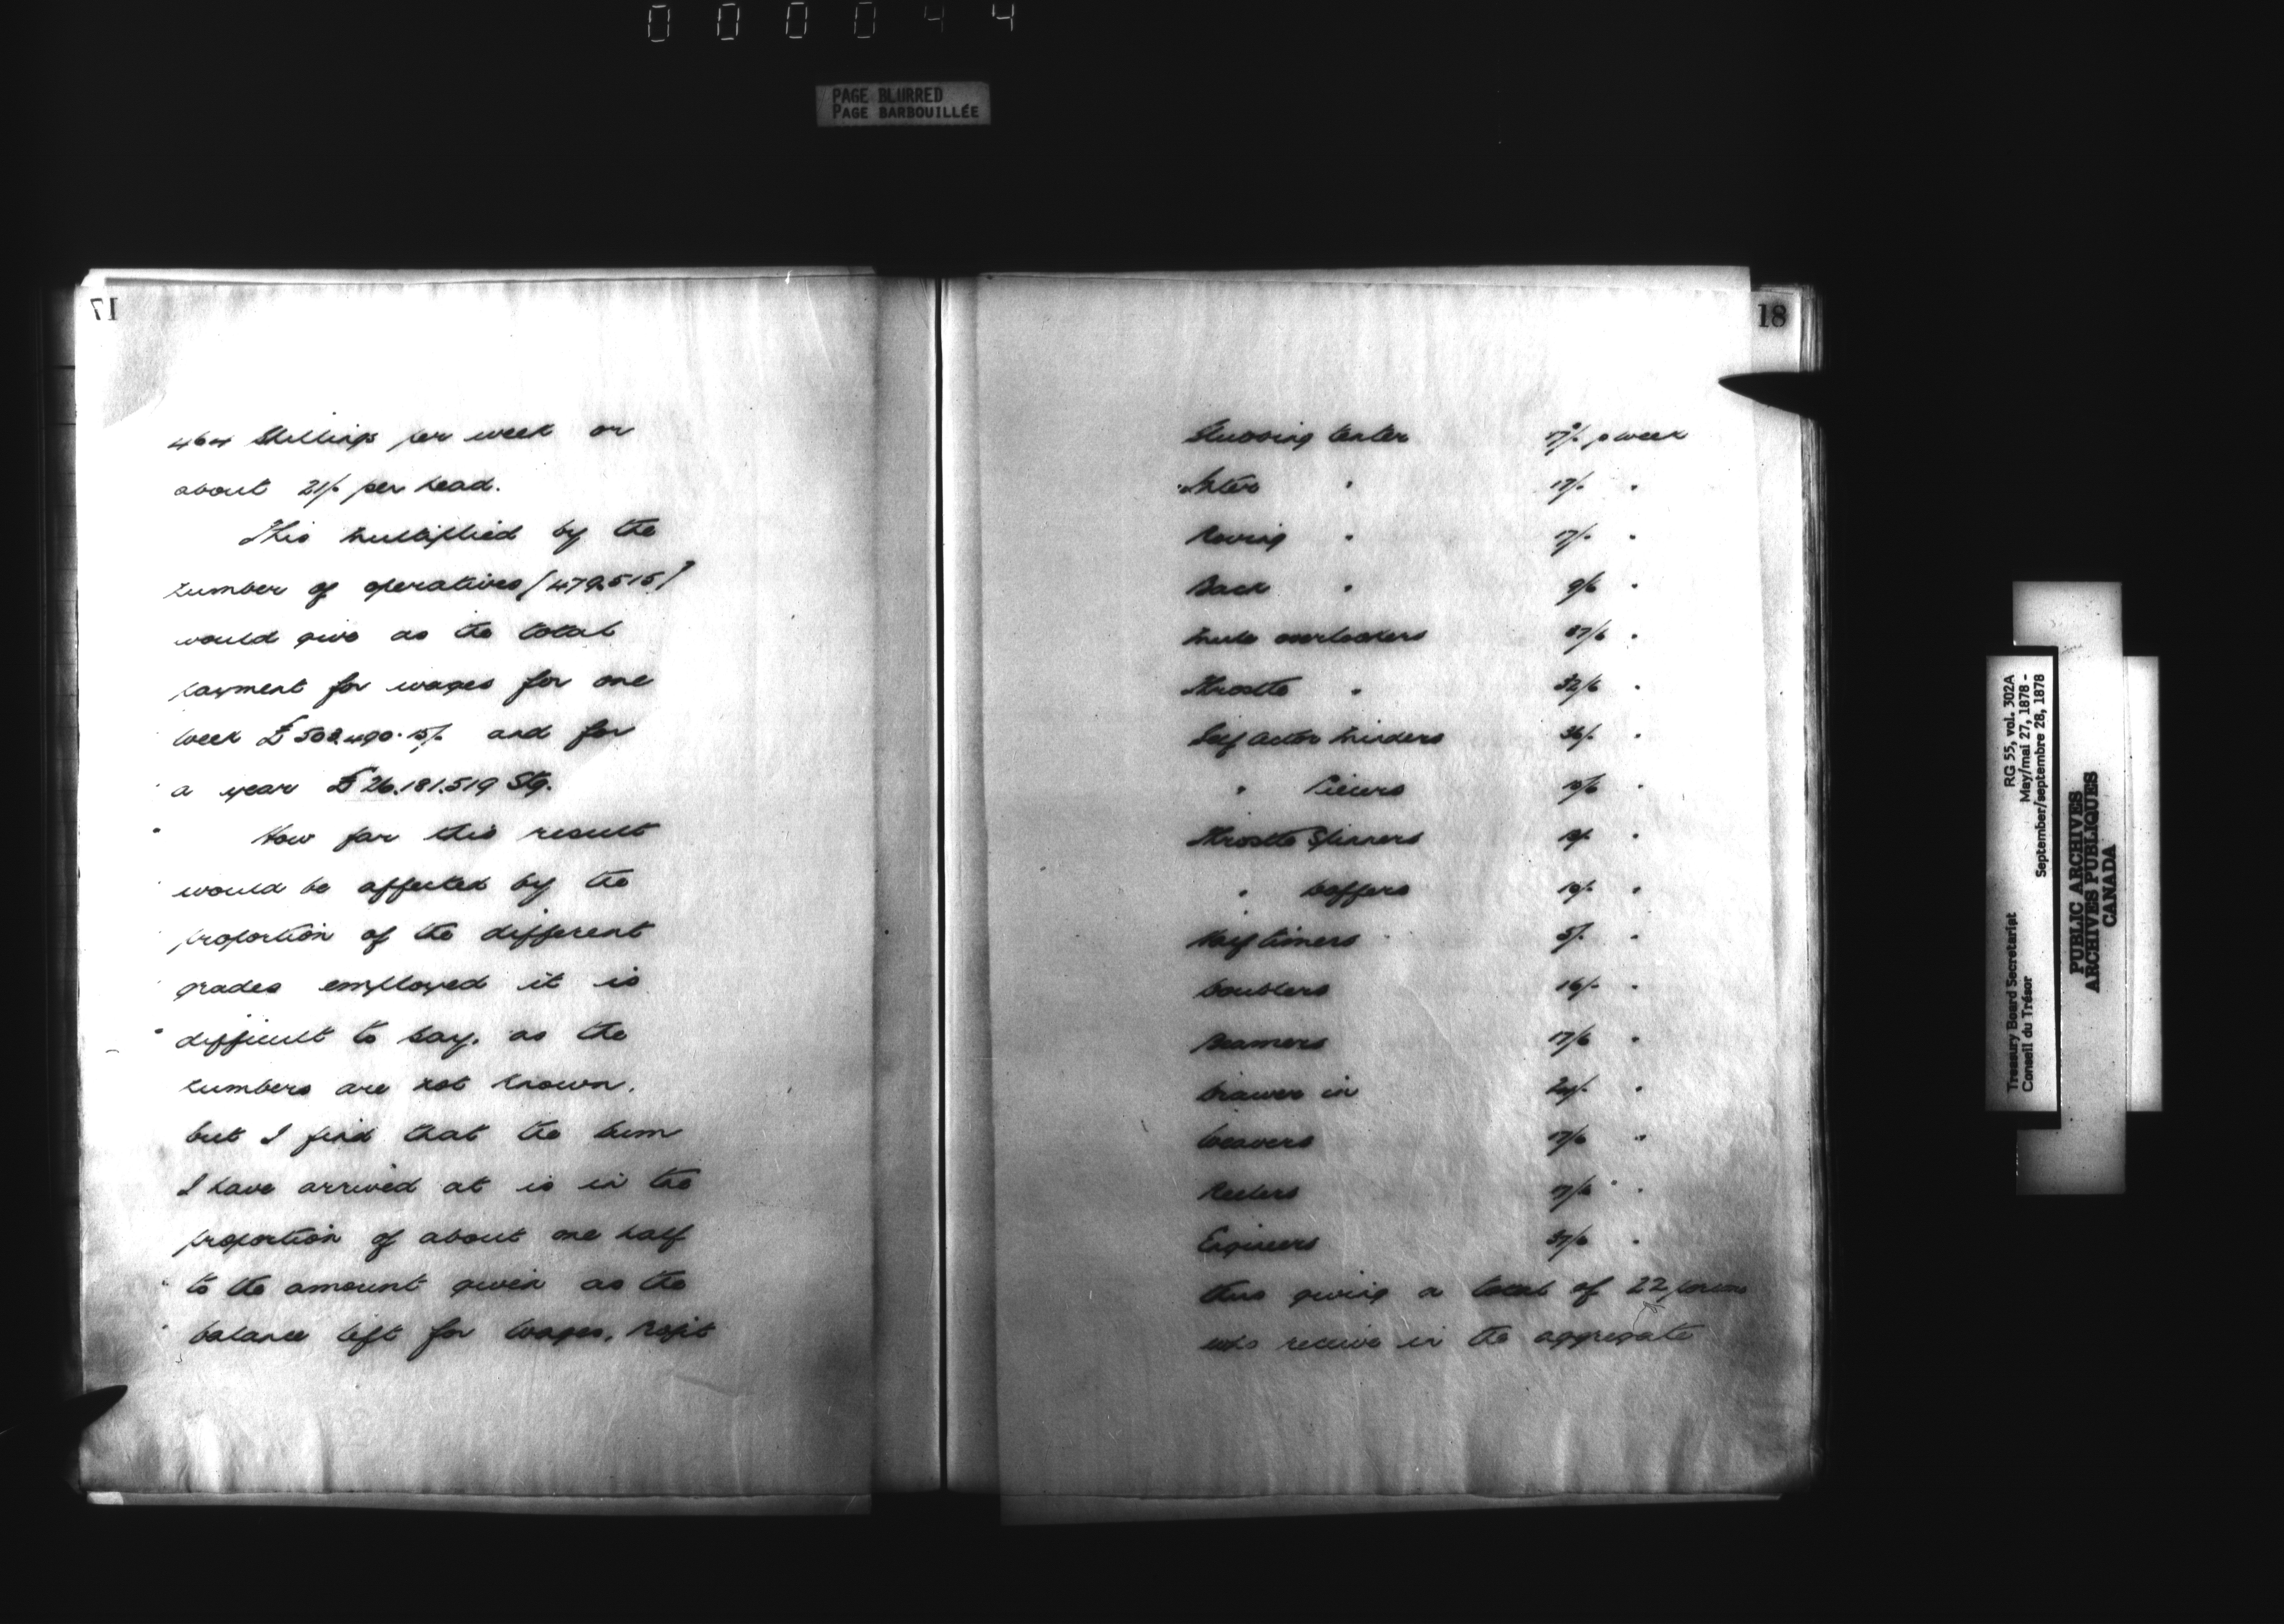 000044
PAGE BLURRED
PAGE BARBOUILLÉE
17
464 Shillings per week or
about 21/- per head.
This multiplied by the
number of operatives (479,515)
would give as the total
payment for wages for one
week £503,490.15/- and for
a year £26.181.519 Stg.
How far this result
would be affected by the
proportion of the different
grades employed it is
difficult to say, as the
numbers are not known.
but I find that the sum
I have arrived at is in the
proportion of about one half
to the amount given as the
balance left for wages, profit
18
Slubbing tenter p week
Inter " 17/- "
Roving " 17/- "
Back " 9/6 "
Mule overlookers 37/6 "
Throstle " 32/6 "
Self Actor Minders 36/- "
" Piecers "
Throstle Spinners "
" Doffers 10/- "
Half timers 5/- "
Doublers 16/- "
Beamers 17/6 "
Drawer in "
Weavers 17/6 "
Reelers 17/6 "
Engineers 37/6 "
thus giving a total of 22 persons
who receive in the aggregate
Treasury Board Secretariat RG 55, vol. 302A
Conseil du Trésor May/mai 27, 1878 -
September/septembre 28, 1878
PUBLIC ARCHIVES
ARCHIVES PUBLIQUES
CANADA